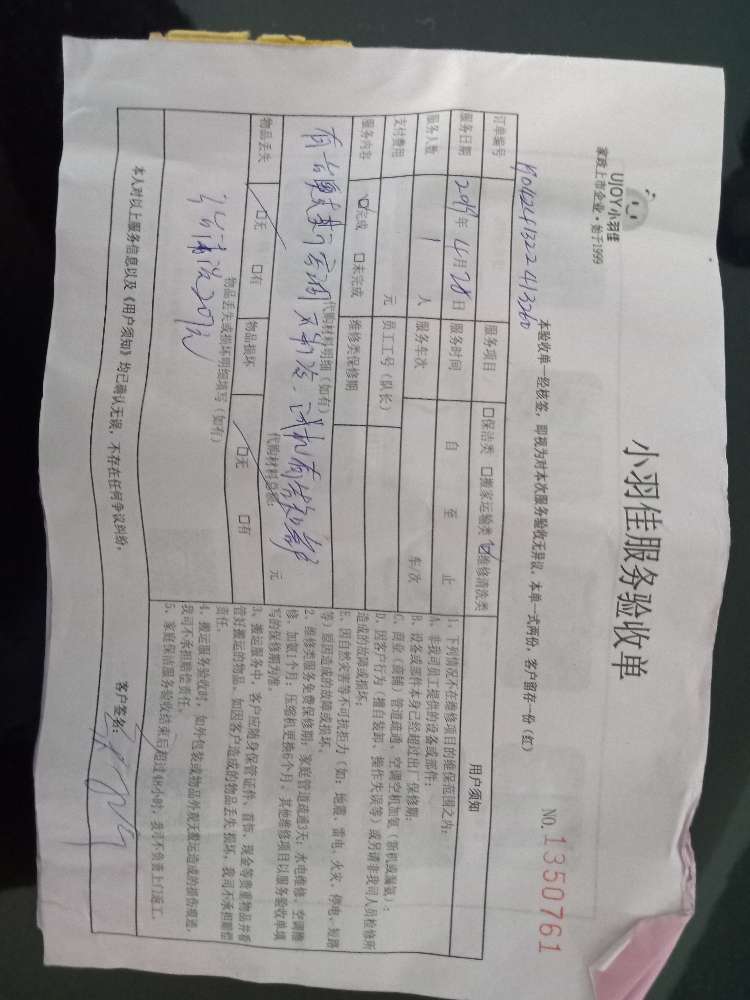 UJOY小羽佳
家政上市企业·始于1999
小羽佳服务验收单
NO.1350761
本验收单一经核签，即视为对本次服务验收无异议，本单一式两份，客户留存一份（红）
订单编号
服务项目 □保洁类 □搬家运输类 ☑维修清洗类
服务日期 年 月28日 服务时间 自 至 止
服务人数 1 人 服务车次 车/次
支付费用 元 员工工号（队长）
服务内容 ☑完成 □未完成 维修类保修期
代购材料明细（如有）
代购材料总额： 元
物品丢失 □无 □有 物品损坏 □无 □有
物品丢失或损坏明细填写（如有）
用户须知
1、下列情况不在维修项目的维保范围之内：
A、非我司员工提供的设备或部件；
B、设备或部件本身已经超过出厂保修期；
C、商业（商铺）管道疏通、空调空机加氨（新机或漏氨）；
D、因客户行为（擅自装卸、操作失误等）或另请非我司人员检修所
造成的故障或损坏；
E、因自然灾害等不可抗拒力（如：地震、雷电、火灾、停电、短路
等）原因造成的故障或损坏。
2、维修类服务免费保修期：家庭管道疏通3天；水电维修、空调维
修、加氨1个月；压缩机更换6个月，其他维修项目以服务验收单填
写的保修期为准。
3、搬运服务中，客户应随身保管证件、首饰、现金等贵重物品并看
管好搬运的物品，如因客户造成的物品丢失损坏，我司不承担赔偿
责任。
4、搬运服务验收时，如外包装或物品外观无搬运造成的损伤痕迹，
我司不承担赔偿责任。
5、家庭保洁服务验收结束后超过48小时，我司不负责上门返工。
本人对以上服务信息以及《用户须知》均已确认无误，不存在任何争议纠纷，
客户签名：